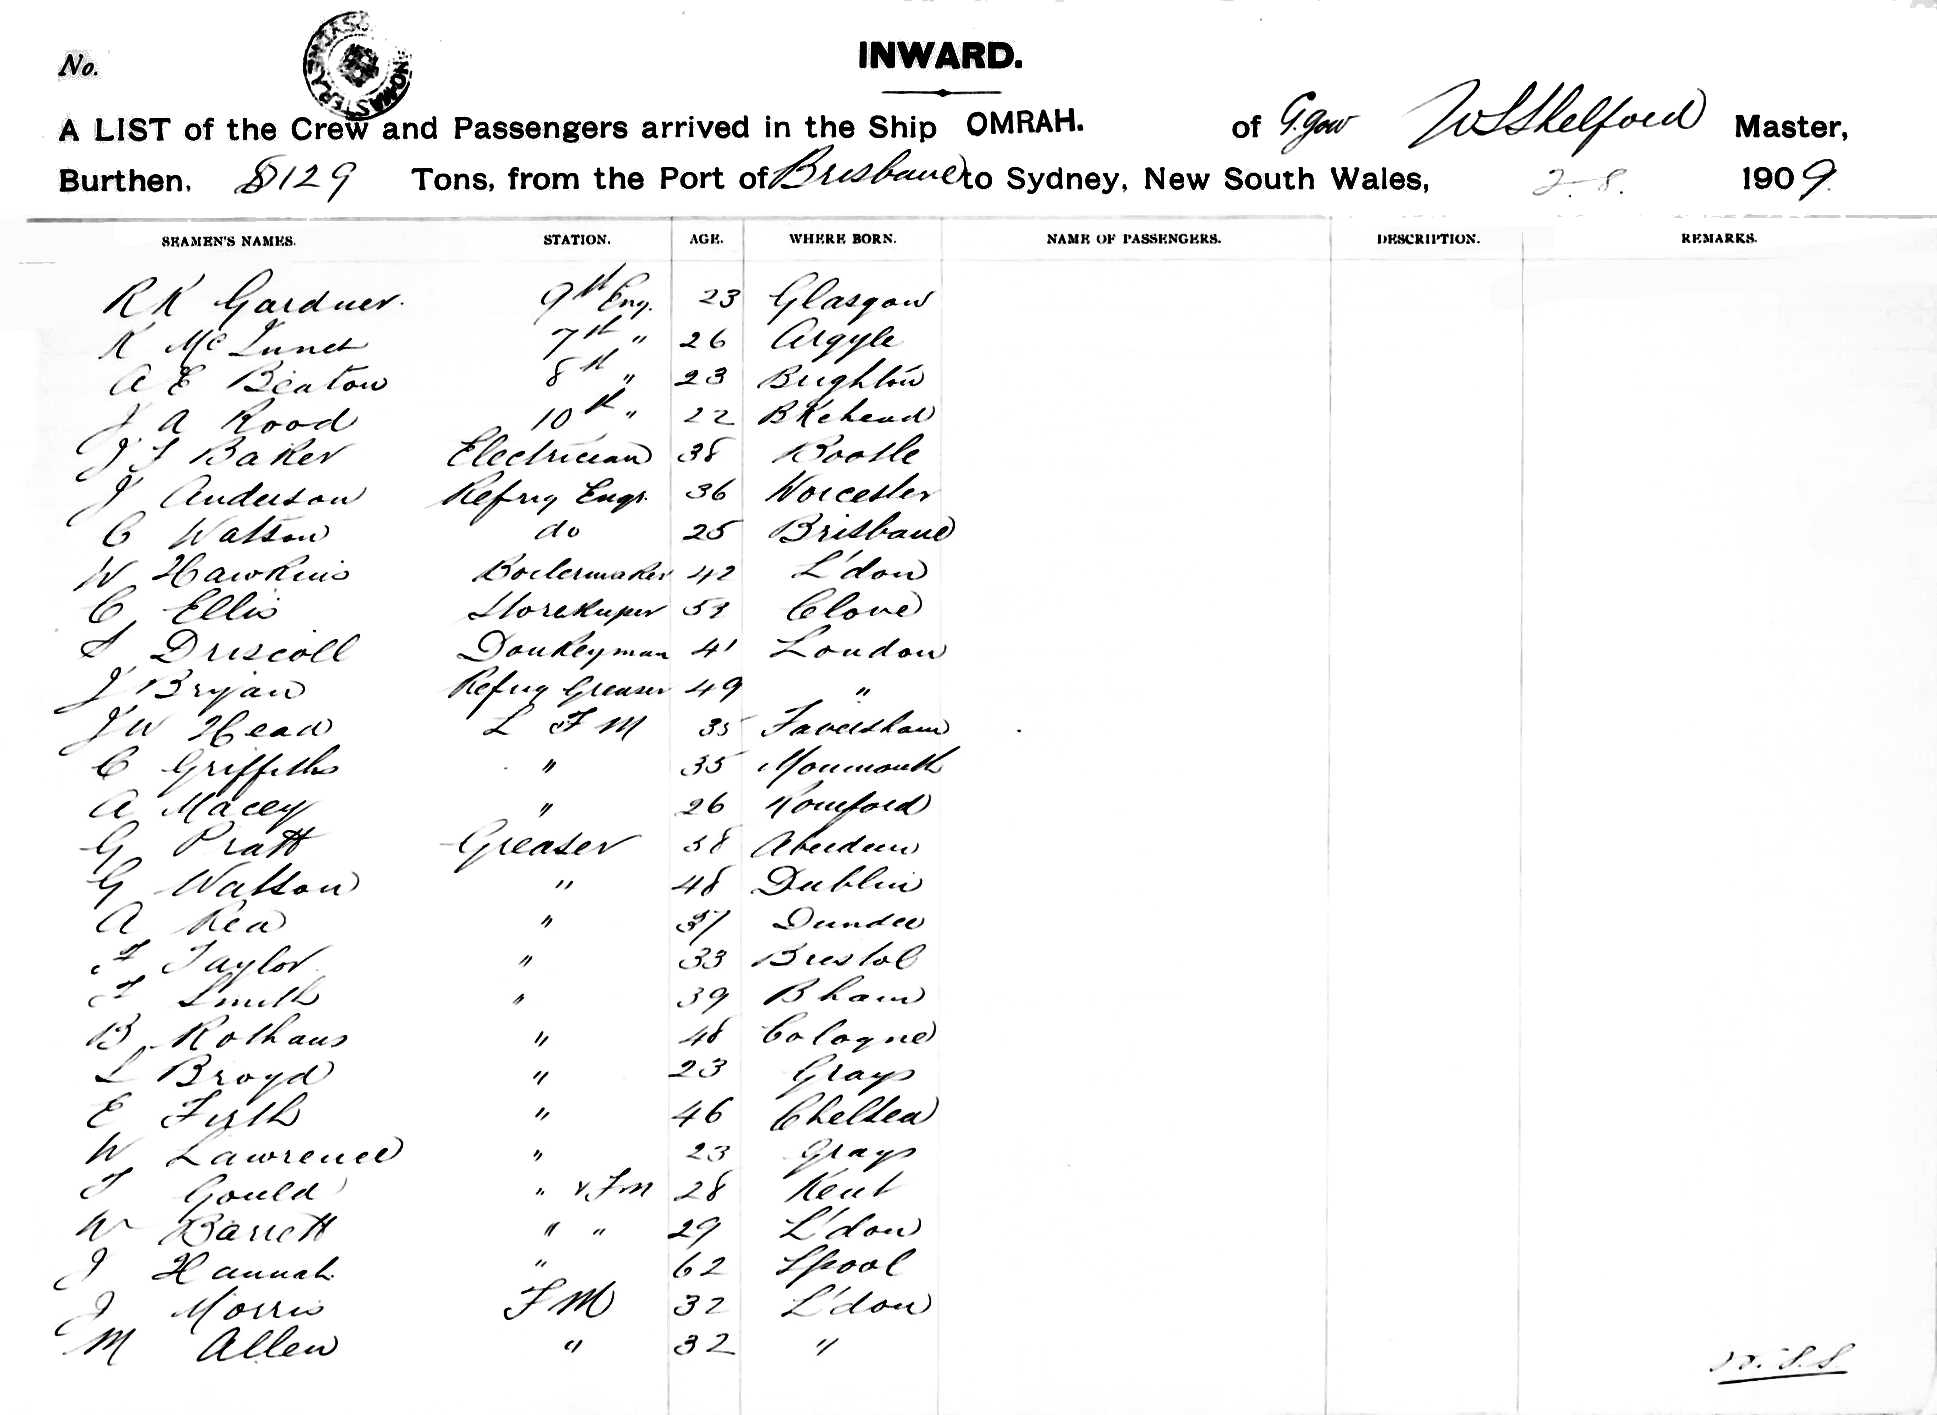 No.
INWARD.
A LIST of the Crew and Passengers arrived in the Ship OMRAH. of G.gow W S Shelford Master,
Burthen, 8129 Tons, from the Port of Brisbane to Sydney, New South Wales, 2-8. 1909.
SEAMEN'S NAMES. STATION. AGE. WHERE BORN. NAME OF PASSENGERS. DESCRIPTION. REMARKS.
R K Gardner. 9th Eng. 23 Glasgow
K 7th " 26 Argyle
A E Beaton 8th " 23 Brighton
J A Rood 10th " 22 BKehead
J S Baker Electrician 38 Bootle
J Anderson Refrig Engr. 36 Worcester
C Watson do 25 Brisbane
W Hawkins Boilermaker 42 L'don
C Ellis Storekeeper 53 Clove
S Driscoll Donkeyman 41 London
J Bryan Refrig Greaser 49 "
J W Head L F M 35 Faversham
C Griffiths " 35 Monmouth
A Macey " 26 Romford
G Pratt Greaser 38 Aberdeen
G Watson " 48 Dublin
A Rea " 37 Dundee
F Taylor " 33 Bristol
F Smith " 39 Bham
B Rothaus " 48 Cologne
L Broyd " 23 Grays
E Firth " 46 Chelsea
W Lawrence " 23 Grays
T Gould " & F M 28 Kent
W Barrett " " 29 L'don
J Hannah " 62 Lpool
J Morris F M 32 L'don
M Allen " 32 "